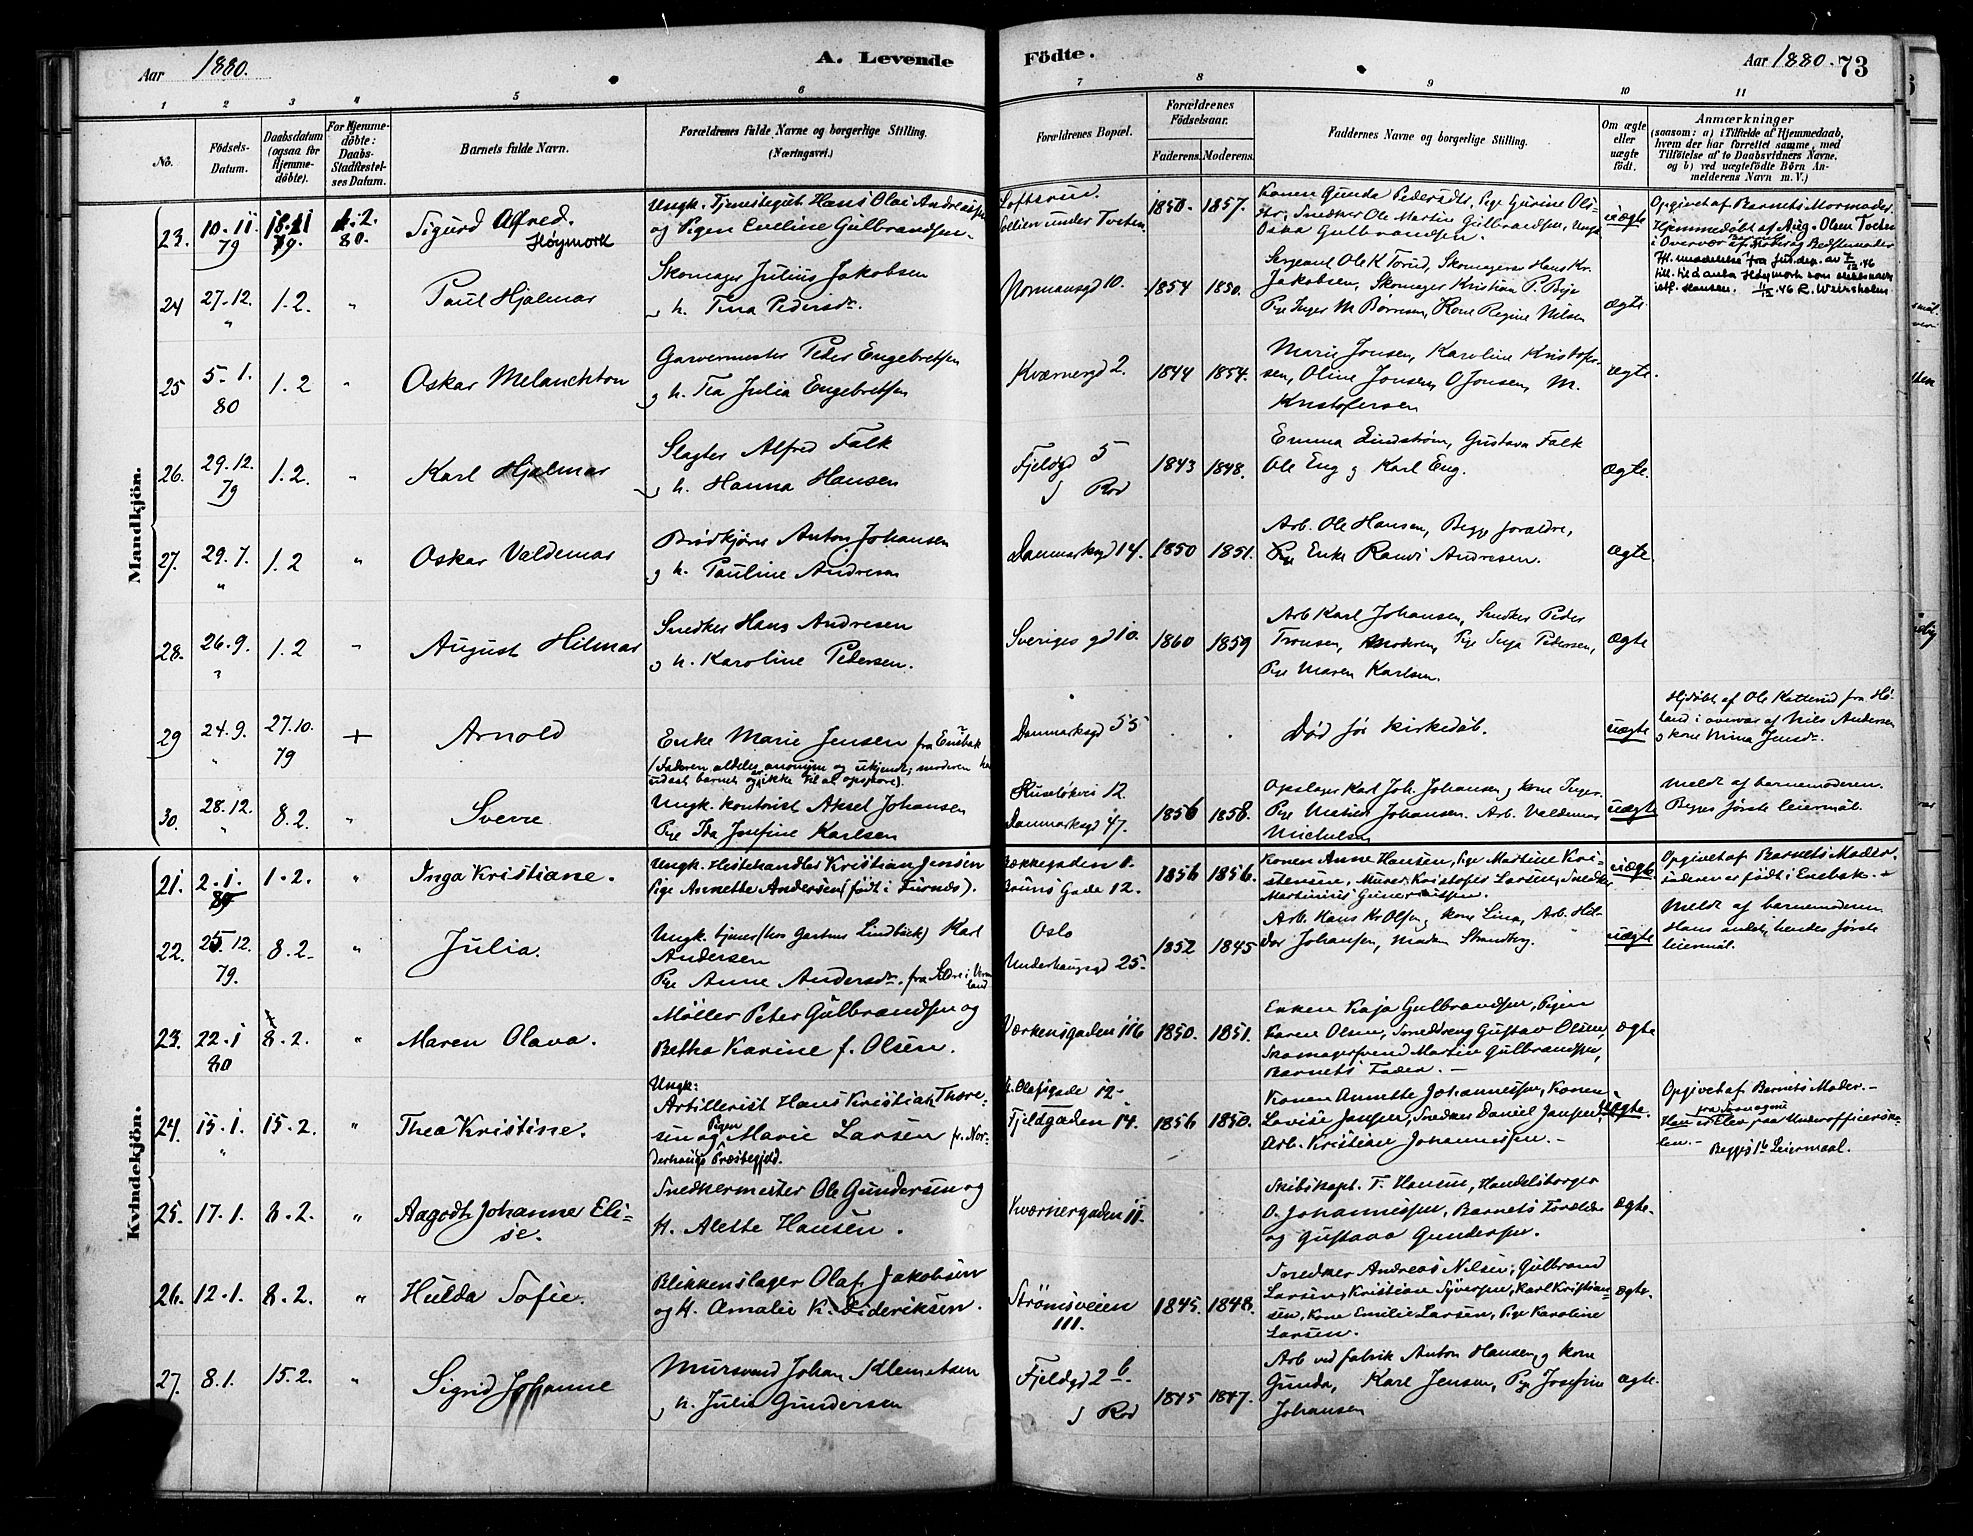 Aar 1880.
A. Levende
Födte.
Aar 1880.
73
1 2 3 4 5 6 7 8 9 10 11
No.
Födsels-
Datum.
Daabsdatum
(ogsaa for
Hjemme-
döbte).
For Hjemme-
döbte:
Daabs-
Stadfæstel-
ses Datum.
Barnets fulde Navn.
Forældrenes fulde Navne og borgerlige Stilling.
(Næringsvei.)
Forældrenes Bopæl.
Forældrenes
Födselsaar.
Faderens. Moderens.
Faddernes Navne og borgerlige Stilling.
Om ægte
eller
uægte
født.
Anmærkninger
(saasom: a) i Tilfælde af Hjemmedaab,
hvem der har forrettet samme, med
Tilföielse af to Daabsvidners Navne,
og b) ved uægtefödte Börn An-
melderens Navn m. V.)
Mandkjön.
23. 10.11 79 18.11 79. 1.2. 80.
Sigurd Alfred.
Høymork
Ungk. Tjenestegut Hans Olai
og Pigen Eveline Gulbrandsen.
under Tveten
1850. 1857.
Konen Gunda Pedersdtr, Pige Gurine Ols-
dtr, Snedker Ole Martin Gulbrandsen, Ungk.
Oska Gulbrandsen.
uægte
Opgivet af Barnets Mormoder.
Hjemmedøbt af Aug. Olsen Tveten
i Overvær af Barnets Moder og Bedstemoder
24 27.12. " 1.2. "
Paul Hjalmar
Skomager Julius Jakobsen
og h. Tina Pedersdtr.
Normansgd 10.
1854 1850.
Sergeant Ole K Torud, Skomagersv Hans Kr.
Jakobsen, Skomager Kristian P. Bye
Pige Inger M Børresen, Kone Regine Nilsen
ægte
25 5.1. 80 1.2 "
Oskar Melanchton
Garvermester Peder Engebretsen
og h. Tea Julia Engebretsen
Kværnergd 2.
1844 1854.
Marie Jonsen, Karoline Kristofer-
sen, Oline Jonsen, O Jonsen, M.
Kristofersen
ægte.
26. 29.12. 79 1.2. "
Karl Hjalmar
Slagter Alfred Falk
og h. Hanna Hansen
Fjeldgd 5
1843 1848.
Emma Lindstrøm, Gustava Falk
Ole Eng og Karl Eng.
ægte.
27. 29.7. " 1.2 "
Oskar Valdemar
Brødkjører Anton Johansen
og h. Pauline Andresen
Danmarksgd 14.
1850 1851.
Arb. Ole Hansen, Begge foraldre,
Enke Ranvi Andresen.
ægte.
28. 26.9. " 1.2 "
August Hilmar
Snedker Hans Andresen
og h. Karoline Pedersen.
Sveriges gd 10.
1860 1859
Arb Karl Johansen, Snedker Peder
Tronsen, Moderen, Pige Inga Pedersen,
Pige Maren Karlsen.
ægte
29 24.9. " 27.10. 79 +
Arnold
Enke Marie Jensen fra Enebak
(Faderen aldeles anonym og ukjendt; moderen har
udsat barnet og er ikke til at opspore).
Danmarksgd 55
Død før kirkedåb.
uægte
Hjdøbt af Ole Katterud fra Hø-
land i overvær af Nils Andersen
og kone Mina Jensdtr.
30. 28.12. " 8.2. "
Sverre
Ungk. kontorist Aksel Johansen
Pige Ida Josefine Karlsen
Huseløkvei 12.
Danmarksgd 47.
1856 1858.
Opslager Karl Joh. Johansen og kone Inger.
Pige Johansen. Arb. Valdemar
Michelsen
uægte
Meldt af barnemoderen.
Begges første leiermål.
Kvindekjön.
21. 2.1. 80 1.2. "
Inga Kristiane.
Ungk. Hestehandler Kristian Jensen
Pige Annette Andersen (født i Furnæs).
Bækkegaden 1.
Bruns Gade 12.
1856 1856.
Konen Anne Hansen, Pige Martine Kri-
stensen, Murer Kristofer Larsen, Snedker
Martinius Gunerius
uægte.
Opgivet af Barnets Moder.
Faderen er født i Enebak.
22. 25.12. 79. 8.2. "
Julia.
Ungk. tjener (hos Gartner Lindbæk) Karl
Andersen
Pige Anne Andersdtr. fra i Verm
land
Oslo
Underhaugsgd 25.
1852 1845
Arb. Hans Kr Olsen og kone Lina, Arb. Hil-
dor Johansen, Madam Strandberg.
uægte
Meldt af barnemoderen.
Hans andet, hendes første
leiermål.
23. 22.1 80 8.2. "
Maren Olava.
Møller Peter Gulbrandsen og
Betha Karine f. Olsen.
Værkensgaden 116
1850. 1851.
Enken Kaja Gulbrandsen, Pigen
Karen Olsen, Gustav Olsen,
Skomagersvend Martin Gulbrandsen,
Barnets Fader.
ægte
24. 15.1. " 15.2. "
Thea Kristine.
Ungk:
Artillerist Hans Kristian Thore-
sen og Pigen Marie Larsen fr. Nor-
derhougs Præstegjeld.
St. Olafsgade 12-
Fjeldgaden 14.
1856 1850.
Konen Annette Johannessen, Konen
Lovise Jansen, Snedker Daniel Jansen,
Arb. Kristian Johannessen.
uægte.
Opgivet af Barnets Moder.
Han er Elev paa Underofficersko-
len.
Begges 1ste Leiermaal.
25. 17.1. 8.2. "
Aagodt Johanne Eli-
se.
Snedkermester Ole Gundersen og
H. Alette Hansen.
Kværnergaden 11.
Skibskapt. T. Hansen, Handelsborger
O. Johannessen, Barnets Forældre
og Gustava Gundersen.
ægte.
26. 12.1. 8.2. "
Hulda Sofie.
Blikkenslager Olaf Jakobsen
og H. Amalie K. Dideriksen.
Strømsveien
111.
1845. 1848.
Snedker Andreas Nilsen, Gulbrand
Larsen, Kristian Syversen, Karl Kristian-
sen, Kone Emilie Larsen, Pige Karoline
Larsen.
ægte.
27. 8.1. 15.2. "
Sigrid Johanne
Mursvend Johan Klemetsen
og h. Julie Gundersen
Fjeldgd 2 b
1845 1847.
Arb ved fabrik Anton Hansen og kone
Gunda, Karl Jensen, Pige Josefine
Johansen
ægte.